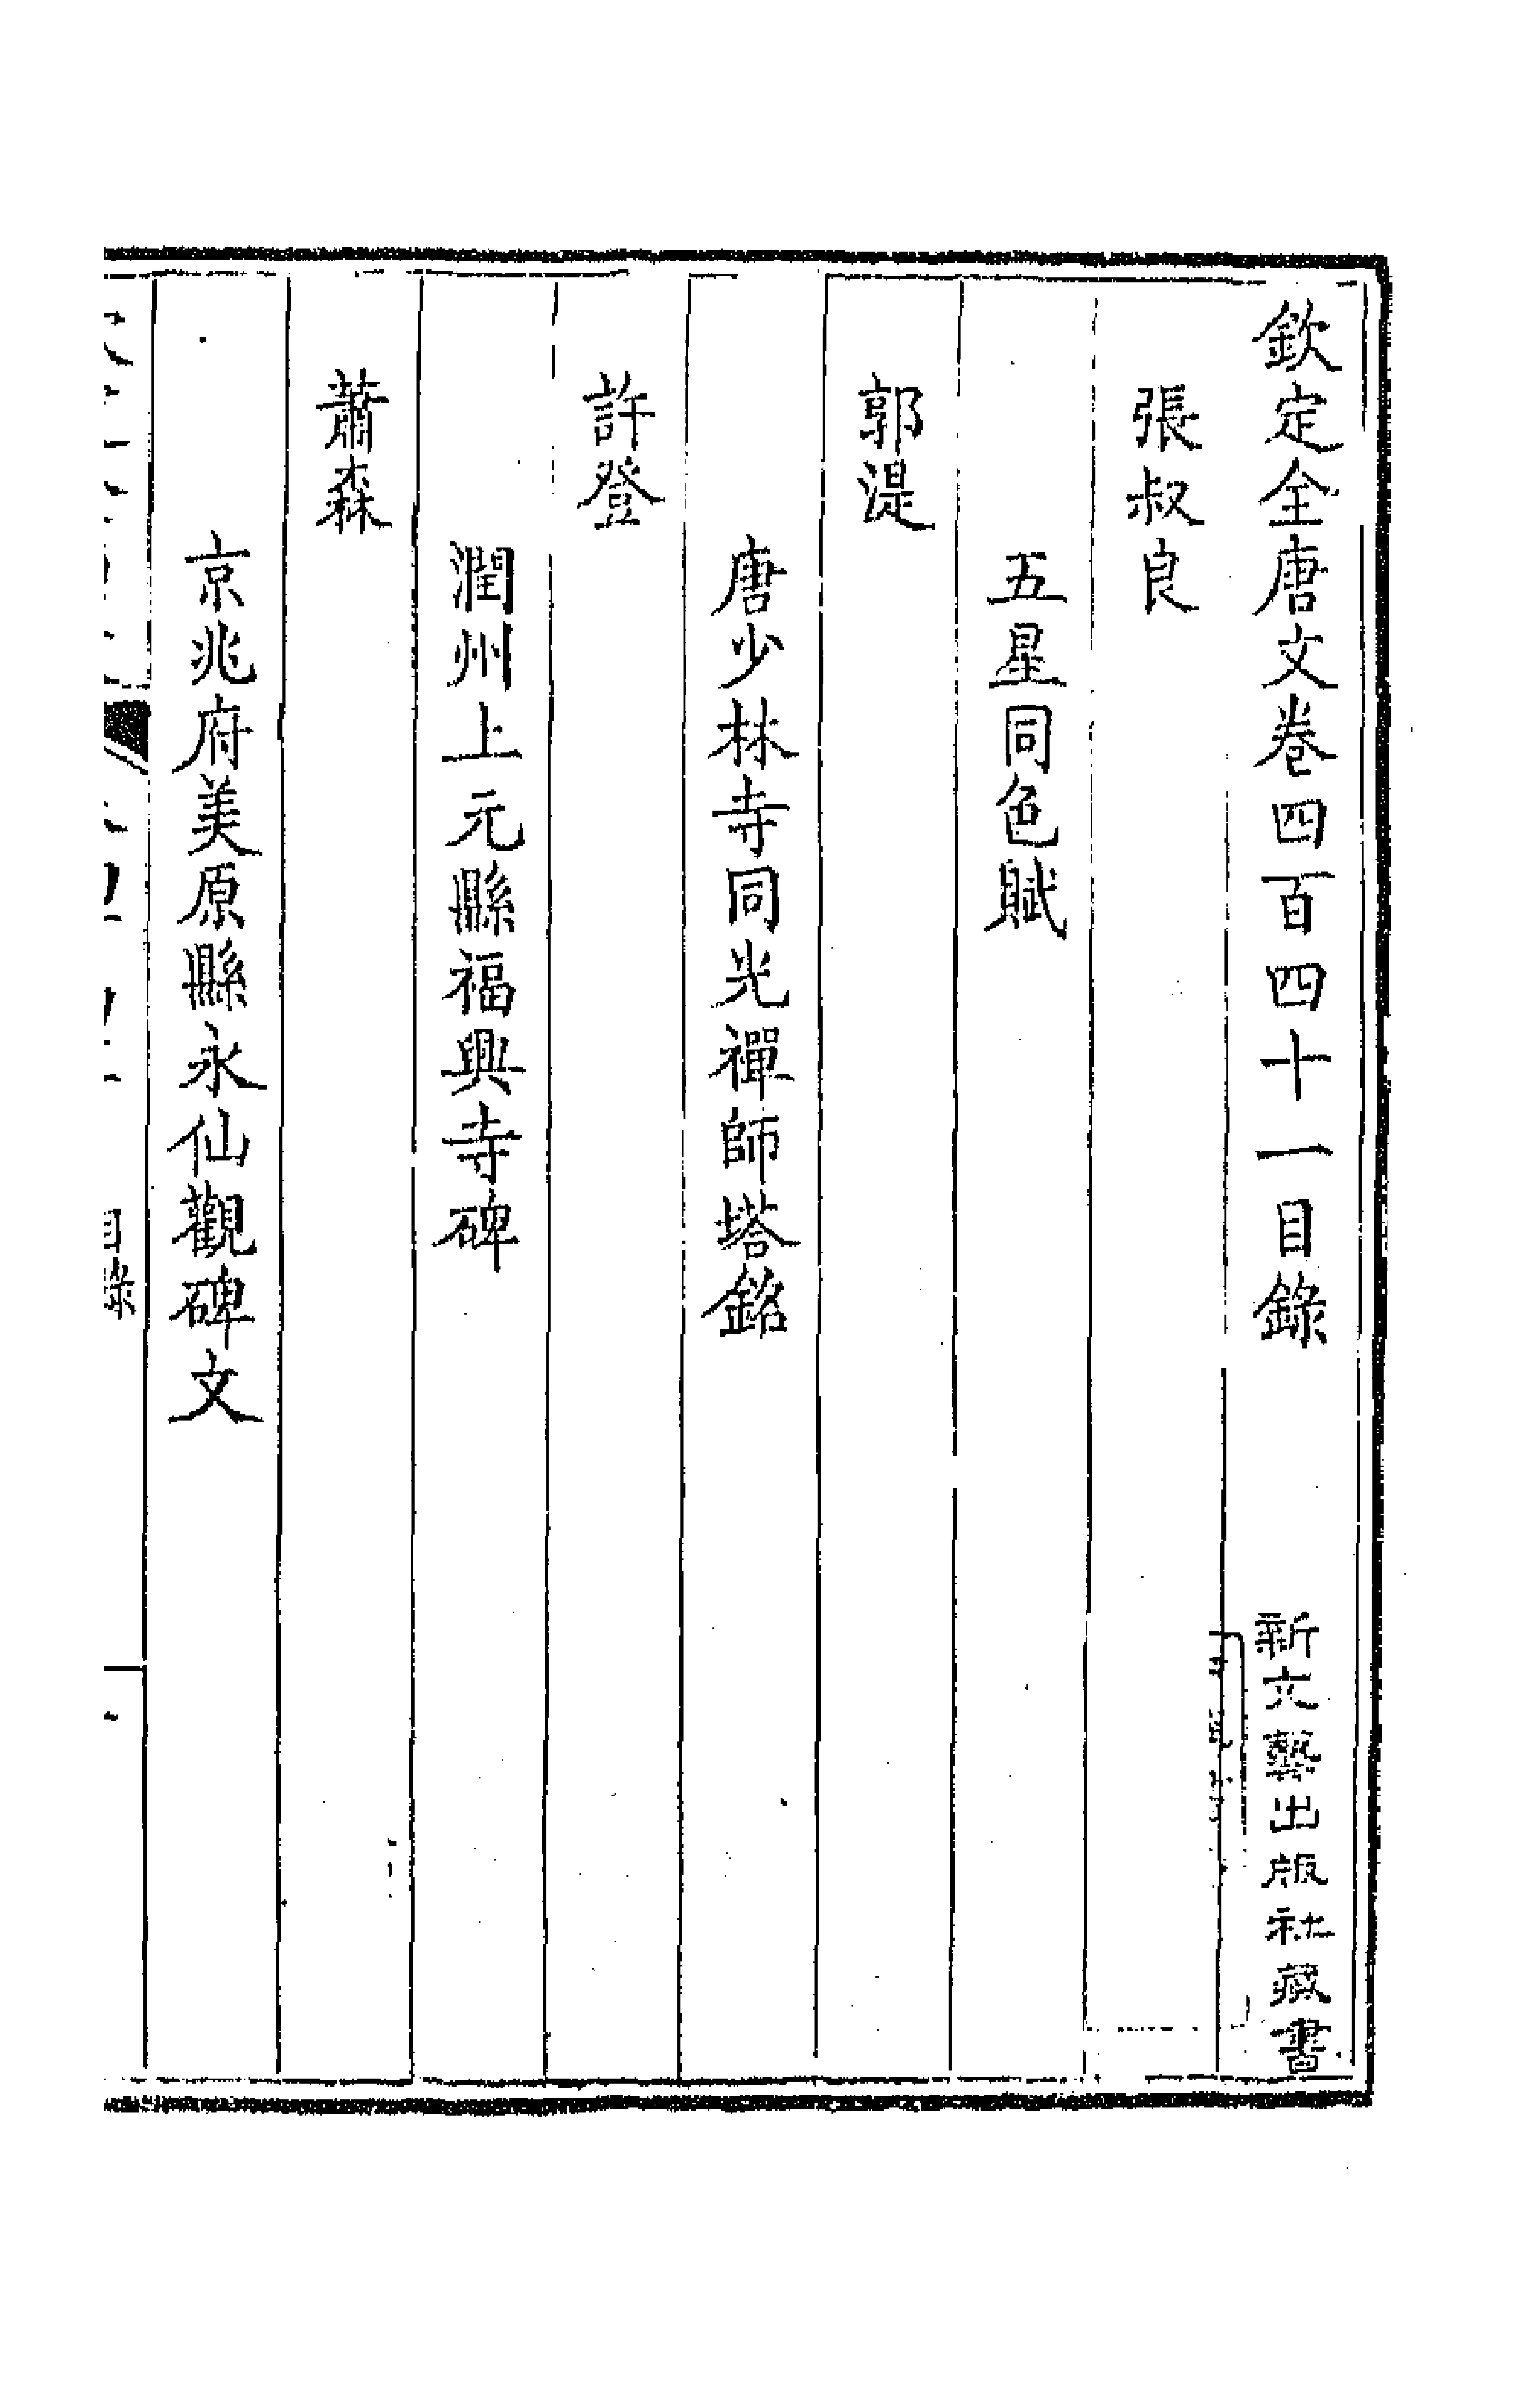 欽定全唐文卷四百四十一目錄
新文藝出版社藏書
張叔良
五星同色賦
郭湜
唐少林寺同光禪師塔銘
許登
潤州上元縣福興寺碑
蕭森
京兆府美原縣永仙觀碑文
目錄